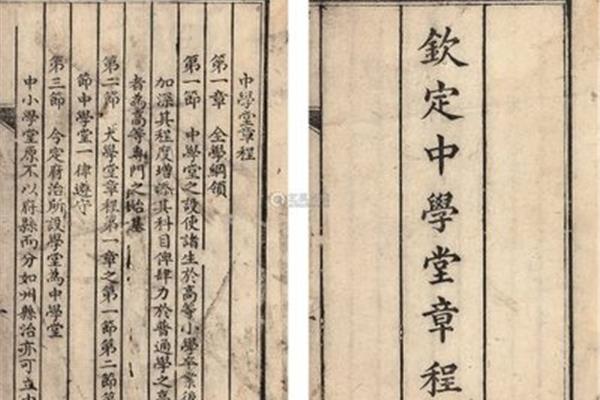 欽定中學堂章程
中學堂章程
第一章 全學綱領
第一節 中學堂之設使諸生於高等小學卒業後
加深其程度增添其科目俾肆力於普通學之高
者為高等專門之始基
第二節 大學堂章程第一章之第一節第二節第
節中學堂一律遵守
第三節 今定府治所設學堂為中學堂
中小學堂原不以府縣而分如州縣治亦可立中